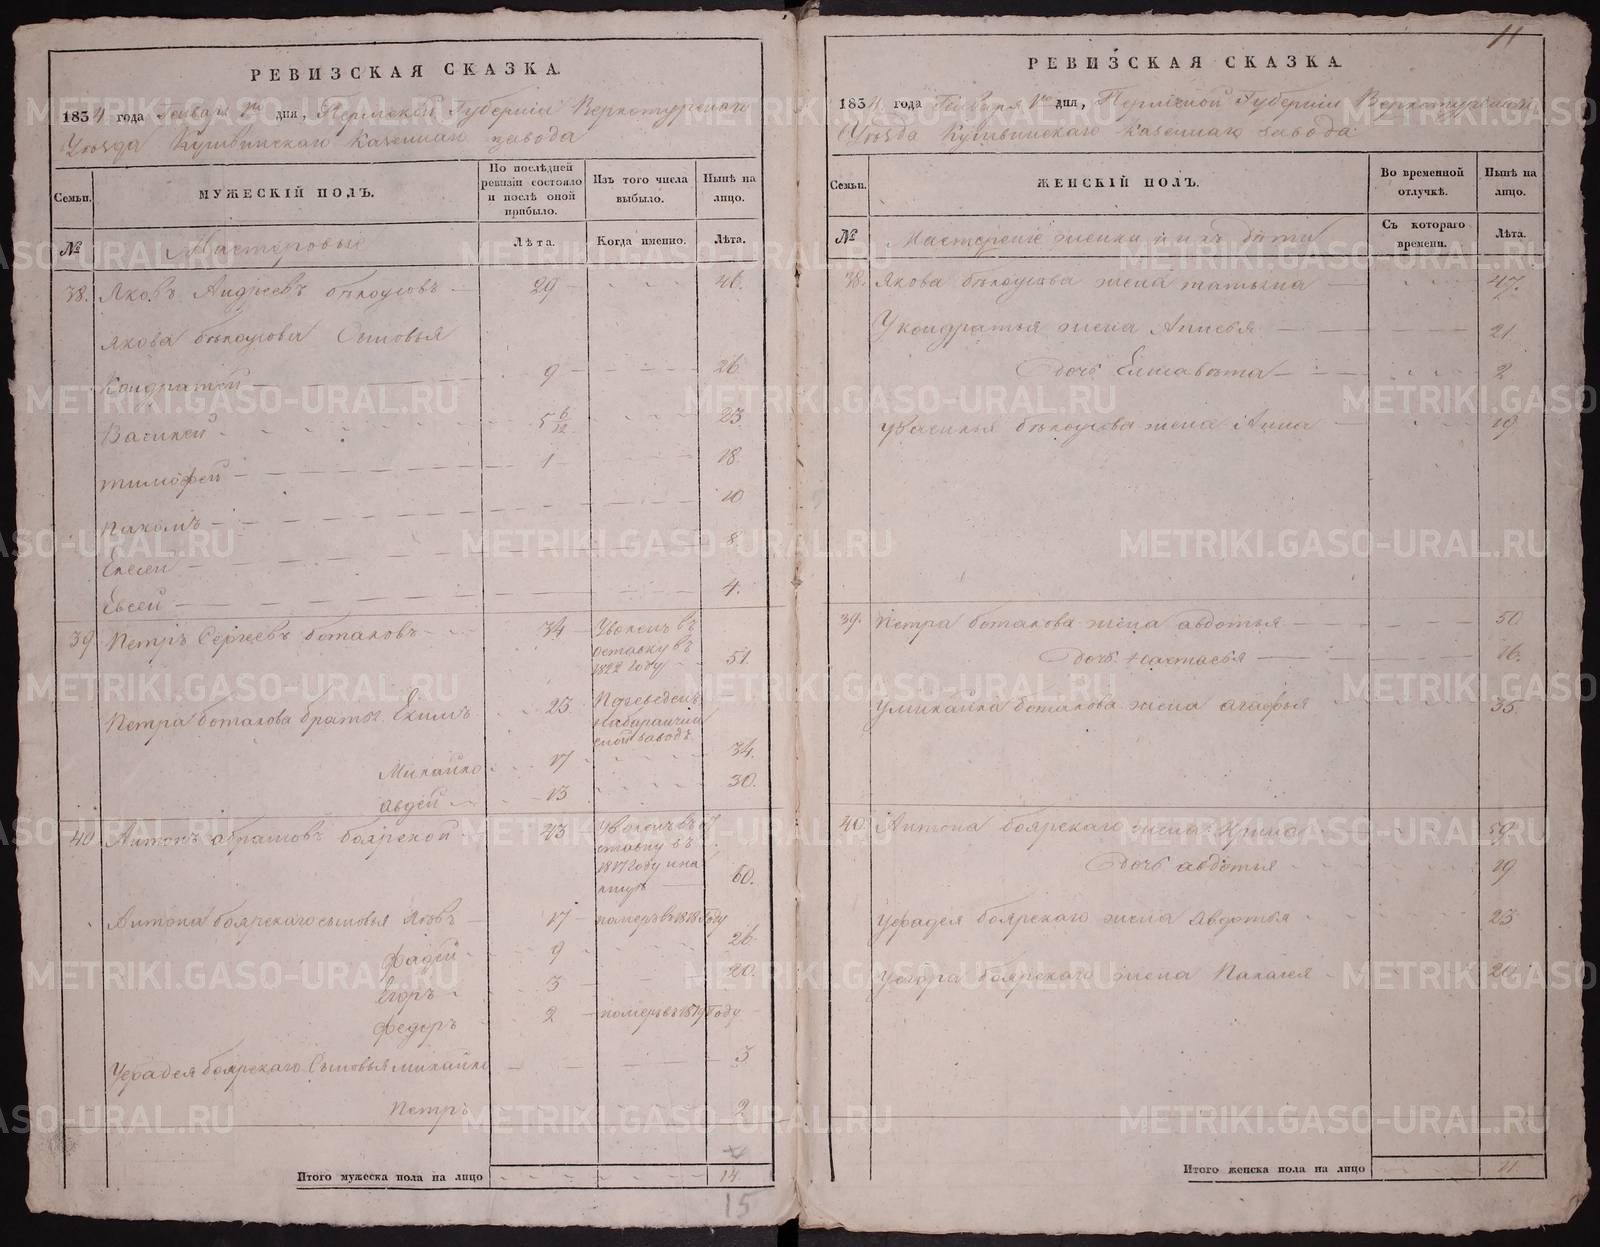 РЕВИЗСКАЯ СКАЗКА.
1834 года Генваря 1го дня, Пермской Губернии Верхотурскаго
Уѣзда Кушвинскаго казеннаго завода
Семьи. МУЖЕСКІЙ ПОЛЪ. По послѣдней ревизіи состояло и послѣ оной прибыло. Изъ того числа выбыло. Нынѣ на лицо.
№ Мастеровые Лѣта. Когда именно. Лѣта.
38. Яковъ Андреевъ бѣлоусовъ 29 46.
Якова бѣлоусова Сыновья
Кондратей 9 26.
Василей 5 6/12 23.
тимофей 1 18.
пахомъ 10
Елесей 8
Евсей 4.
39. Петръ Сергеевъ боталовъ 34 Уволенъ въ
отставку въ
1822 году 51.
Петра боталова братья Екимъ 25 Переведенъ
на баранчин
ской заводъ
Михайло 17 34.
авдей 13 30.
40. Антонъ абрамовъ боярской 43 Уволенъ въ от
ставку въ
1817 году 60.
Антона боярскаго сыновья Яковъ 17 померъ въ 1818 году
фадей 9 26.
Егоръ 3 20.
федоръ 2 померъ въ 1819 году
У фадея боярскаго Сыновья михайло 3
Петръ 2
Итого мужеска пола на лицо 14
15
11
РЕВИЗСКАЯ СКАЗКА.
1834 года Генваря 1го дня, Пермской Губернии Верхотурскаго
Уѣзда Кушвинскаго казеннаго завода
Семьи. ЖЕНСКІЙ ПОЛЪ. Во временной отлучкѣ. Нынѣ на лицо.
№ Мастерские женки и ихъ дѣти Съ котораго времени. Лѣта.
38. Якова бѣлоусова жена татьяна 47.
У кондратья жена Анисья 21
дочь Елисавѣта 2
У Василья бѣлоусова жена Анна 19
39. Петра боталова жена авдотья 50
дочь настасья 16.
У михайла боталова жена агафья 35
40. Антона боярскаго жена 59.
дочь авдотья 19
У фадея боярскаго жена Авдотья 25
У егора боярскаго жена Палагея 20
Итого женска пола на лицо 11
METRIKI.GASO-URAL.RU